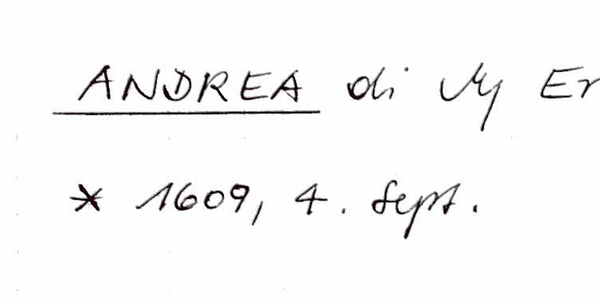 ANDREA di M Er
* 1609, 4. Sept.